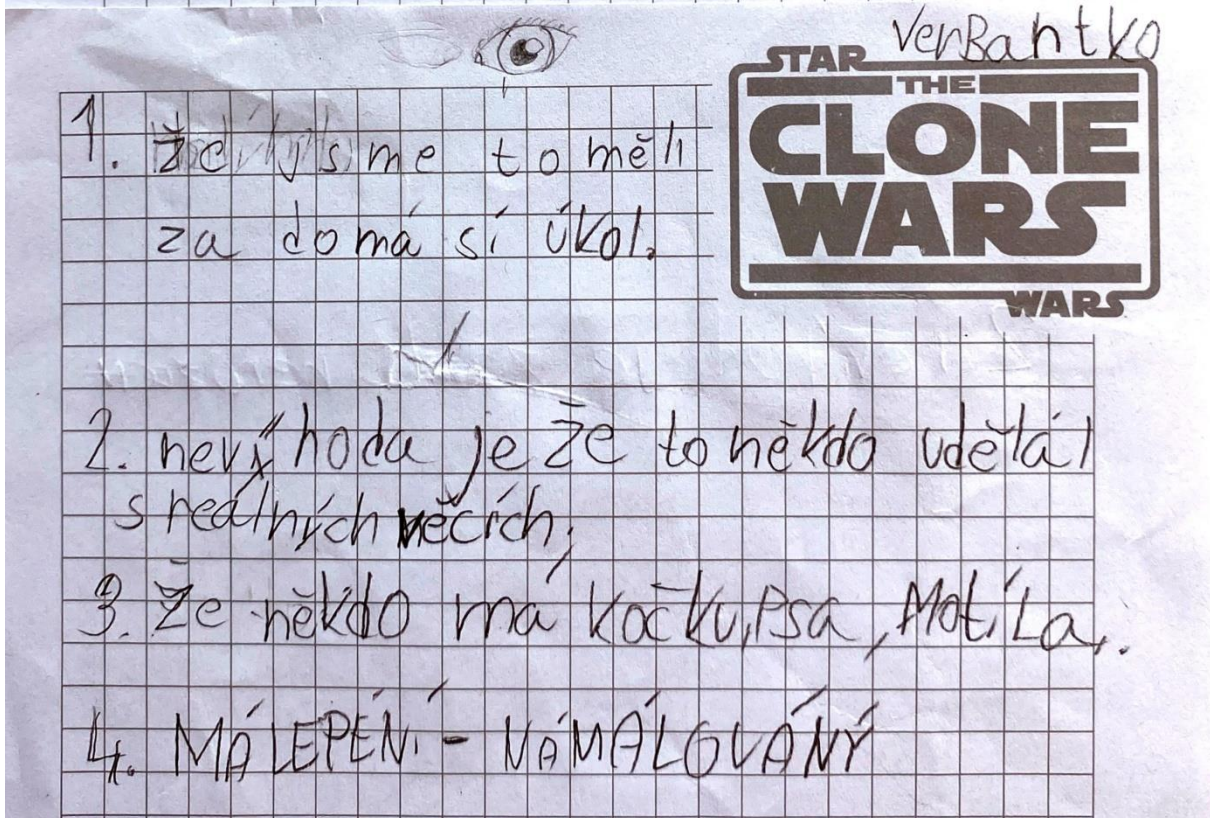 VerBantko
STAR
THE
CLONE
WARS
WARS
1. že jsme to měli
za domá sí úkol.
2. nevýhoda je že to někdo udělál
s reálných věcích,
3. Že někdo má kočku, Psa, Motíla,.
4. MÁLEPENÍ - NÁMÁLOVÁNÝ